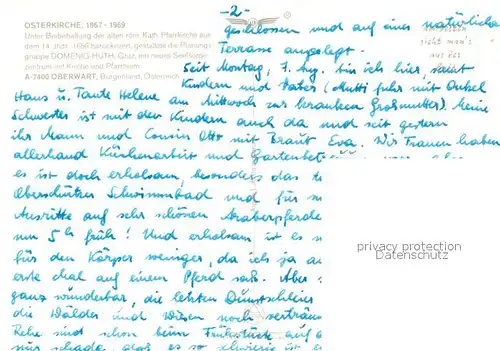 OSTERKIRCHE, 1967 - 1969
Unter Einbeziehung der alten röm. Kath. Pfarrkirche aus
dem 14. Jhdt., 1656 barockisiert, gestaltete die Planungs-
gruppe DOMENIG HUTH, Graz, ein neues Seelsorge-
zentrum mit Kirche und Pfarrheim
A-7400 OBERWART, Burgenland, Österreich
-2-
geschlossen und auf eine natürliche
Terrasse angelegt.
sieht man's
aus der
Seit Montag, 7. Aug. bin ich hier, samt
Kindern und Vater (Mutti fuhr mit Onkel
Hans u. Tante Helene am Mittwoch zur kranken Großmutter). Meine
Schwester ist mit den Kindern auch da und seit gestern
ihr Mann und Cousin Otto mit Braut Eva. Wir Frauen haben
allerhand Küchenarbeit und
es ist doch erholsam, besonders das
Oberschützer Schwimmbad und für
Ausritte auf sehr schönen Araberpferde
um 5h früh! Und erholsam ist es
für den Körper weniger, da ich ja
erste Mal auf einem Pferd saß. Aber
ganz wunderbar, die letzten Dunstschleier
die Wälder und Wiesen noch
Rehe sind schon beim Frühstück auf
nur schade, daß es so schwierig ist
privacy protection
Datenschutz